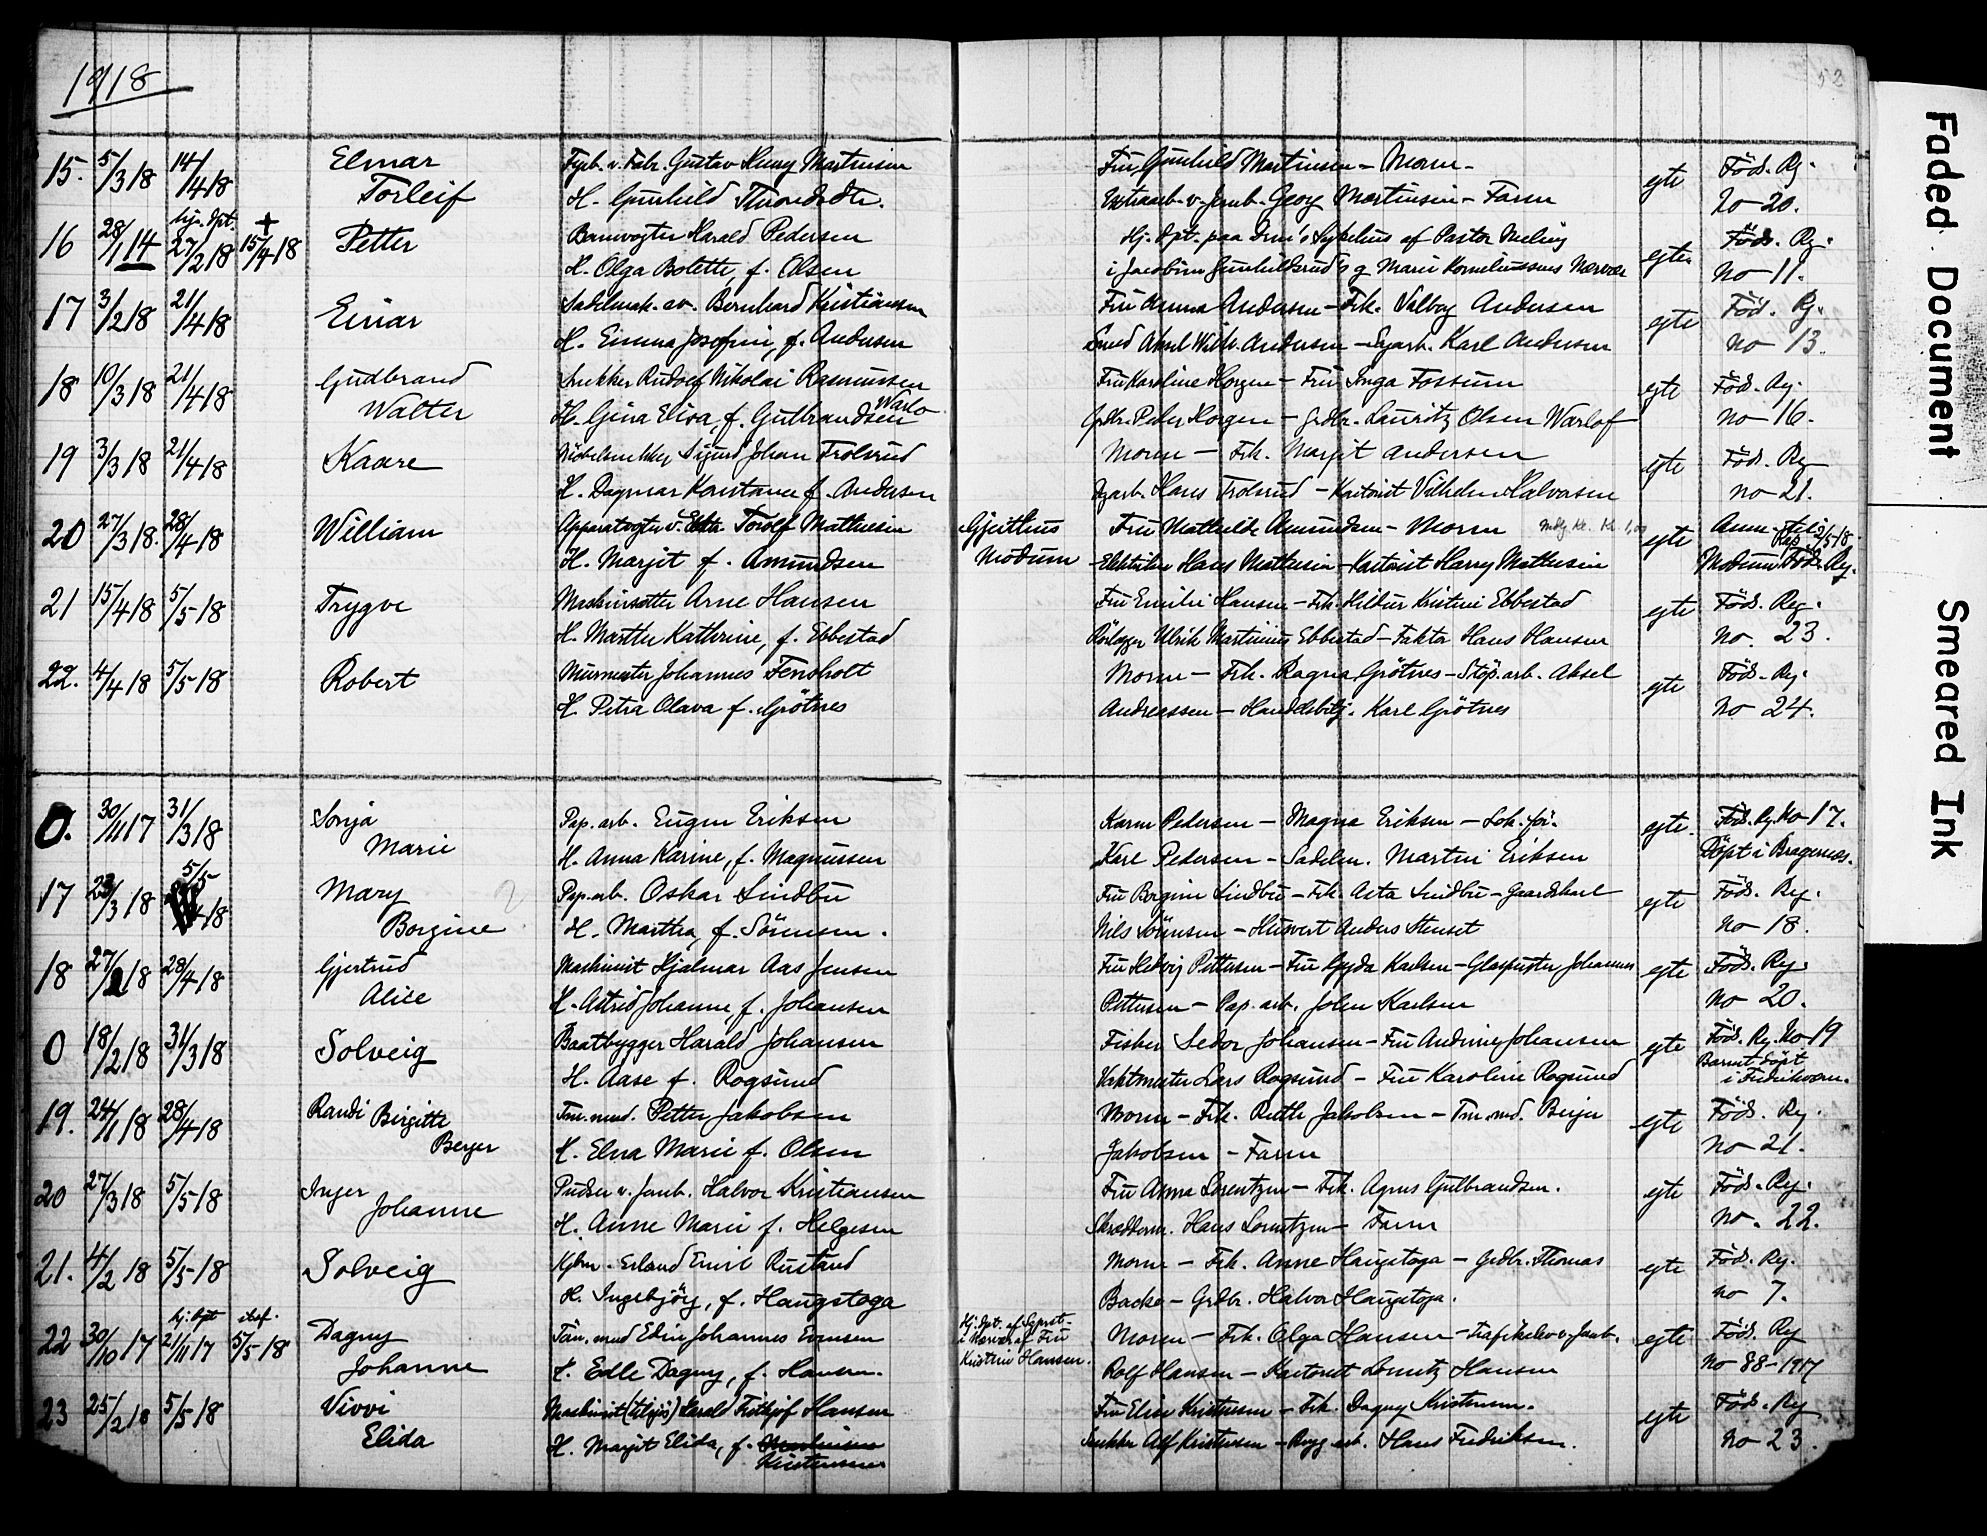 1918
52
15. 5/3 18 14/4 18 Elmar Fyrb. v. Fabr. Gustav Henry Martinsen Fru Gunhild Martinsen - Moren - egte Föds. Rg.
Torleif H. Gunhild Martinsen - Faren No 20.
16 28/1 14 hj. döpt. 27/2 18 + 15/4 18 Petter Banevogter Harald Pedersen Hj. dpt. paa Drm's Sykehus af Pastor egte Föds. Rg.
H. Olga Bolette, f. Olsen i Jacobine Gunhildsrud's og Marie Korneliussens Nærvær No 11.
17 3/2 18 21/4 18 Einar Sadelmak. av. Bernhard Kristiansen Fru Anna Andersen - Frk. Valborg Andersen egte Föd. Rg.
H. Emma Josefine, f. Andersen Smed Aksel Wilh. Andersen - Karl Andersen No 13.
18 10/3 18 21/4 18 Gudbrand Snekker Rudolf Nikolai Rasmussen Fru Karoline Horgen - Fru Inga Fossum egte Föd. Rg.
Walter H. Gina Elisa, f. Gulbrandsen Warlo Grdbr. Peder Horgen - Grdbr. Lauritz Olsen Warlof No 16.
19 3/3 18 21/4 18 Kaare Möbelsnekker Sigurd Johan Trolsrud Moren - Frk. Margit Andersen egte Föd. Rg
H. Dagmar Konstance f. Andersen Hans Trolsrud - Kontorist Vilhelm Halvorsen No 21.
20 27/3 18. 28/4 18 William Apparatvogter v. Torolf Mathiesen Gjeithus Fru Mathilde Amundsen - Moren egte Anm. 2/5 18
H. Margit f. Amundsen Modum Elektriker Hans Mathiesen - Kontorist Harry Mathiesen Modum Föds. Rg.
21 15/4 18 5/5 18 Trygve Maskinsetter Arne Hansen Fru Emilie Hansen - Frk. Hildur Kristine Ebbestad egte Föds. Reg.
H. Marthe Kathrine, f. Ebbestad Rörlegger Ulrik Martinius Ebbestad - Faktor Hans Hansen No. 23.
22. 4/4 18 5/5 18 Robert Murmester Johannes Fensholt Moren - Frk. Ragna Grötnes - Stöp. arb. Aksel egte Föds. Rg.
H. Petra Olava f. Grötnes Andreassen - Handelsbtj. Karl Grötnes No 24.
0. 30/11 17 31/3 18 Sonja Pap. arb. Eugen Eriksen Karen Pedersen - Magna Eriksen - Lok. för. egte Föd. Rg. No 17.
Marie H. Anna Karine, f. Magnussen Karl Pedersen - Sadelm. Martin Eriksen Döpt i Bragernæs.
17 23/3 18 5/5 18 Mary Pap. arb. Oskar Lindbu Fru Borgine Lindbu - Frk. Asta Lindbu - Gaardskarl egte Föds. Rg.
Borgine H. Martha, f. Sörensen. Nils Sörensen - Anders Stenset No 18.
18 27/2 18 28/4 18 Gjertrud Maskinist Hjalmar Aas Jensen Fru Hedvig Pettersen - Fru Gyda Karlsen - Glaspuster Johannes egte Föds. Rg.
Alice H. Astrid Johanne, f. Johansen Pettersen - Pap. arb. John Karlsen No 20.
0 18/2 18 31/3 18 Solveig Baatbygger Harald Johansen Fisker Johansen - Fru Andrine Johansen egte Föd. Rg. No 19
H. Aase f. Rogsund Vaktmester Lars Rogsund - Fru Karoline Rogsund Barnet döpt i Fredriksværn.
19. 24/1 18 28/4 18 Randi Birgitte Tm. mnd. Petter Jakobsen Moren - Frk. Ruth Jakobsen - Tm. md. Birger egte Föds. Rg.
Berger H. Elna Marie f. Olsen Jakobsen - Faren No 21.
20 27/3 18 5/5 18 Inger Pudser v. Jernb. Halvor Kristiansen Fru Anna Lorentzen - Frk. Agnes Gulbrandsen. egte Föds. Rg.
Johanne H. Anne Marie f. Helgesen Skreddern. Hans Lorentzen - Faren No. 22.
21. 4/2 18 5/5 18 Solveig Kjbm. Erland Emil Rustand Moren - Frk. Anne Haugstoga - Grdbr. Thomas egte Föd. Rg.
H. Ingebjörg, f. Haugstoga Backe - Grdbr. Halvor Haugstoga. No 7.
22 30/10 17 hj. döpt 21/11 17 stadf. 5/5 18 Dagny Edin Johannes Evensen Hj. dpt. af Moren - Frk. Olga Hansen - Trafikelev v. Jernb. egte Föd. Rg
Johanne H. Edle Dagny, f. Hansen. i Nærvær af Fru Kristine Hansen. Rolf Hansen - Kontorist Lorentz Hansen No 88-1917
23 25/2 18 5/5 18 Vivvi Maskinist (tilsjös) Harald Fritjof Hansen Fru Elise Kristensen - Frk. Dagny Kristensen. egte Föds. Rg
Elida H. Margit Elida, f. Kristensen Snekker Alf Kristensen - Brygg. arb. Hans Fredriksen. No 23.
Faded Document
Smeared Ink